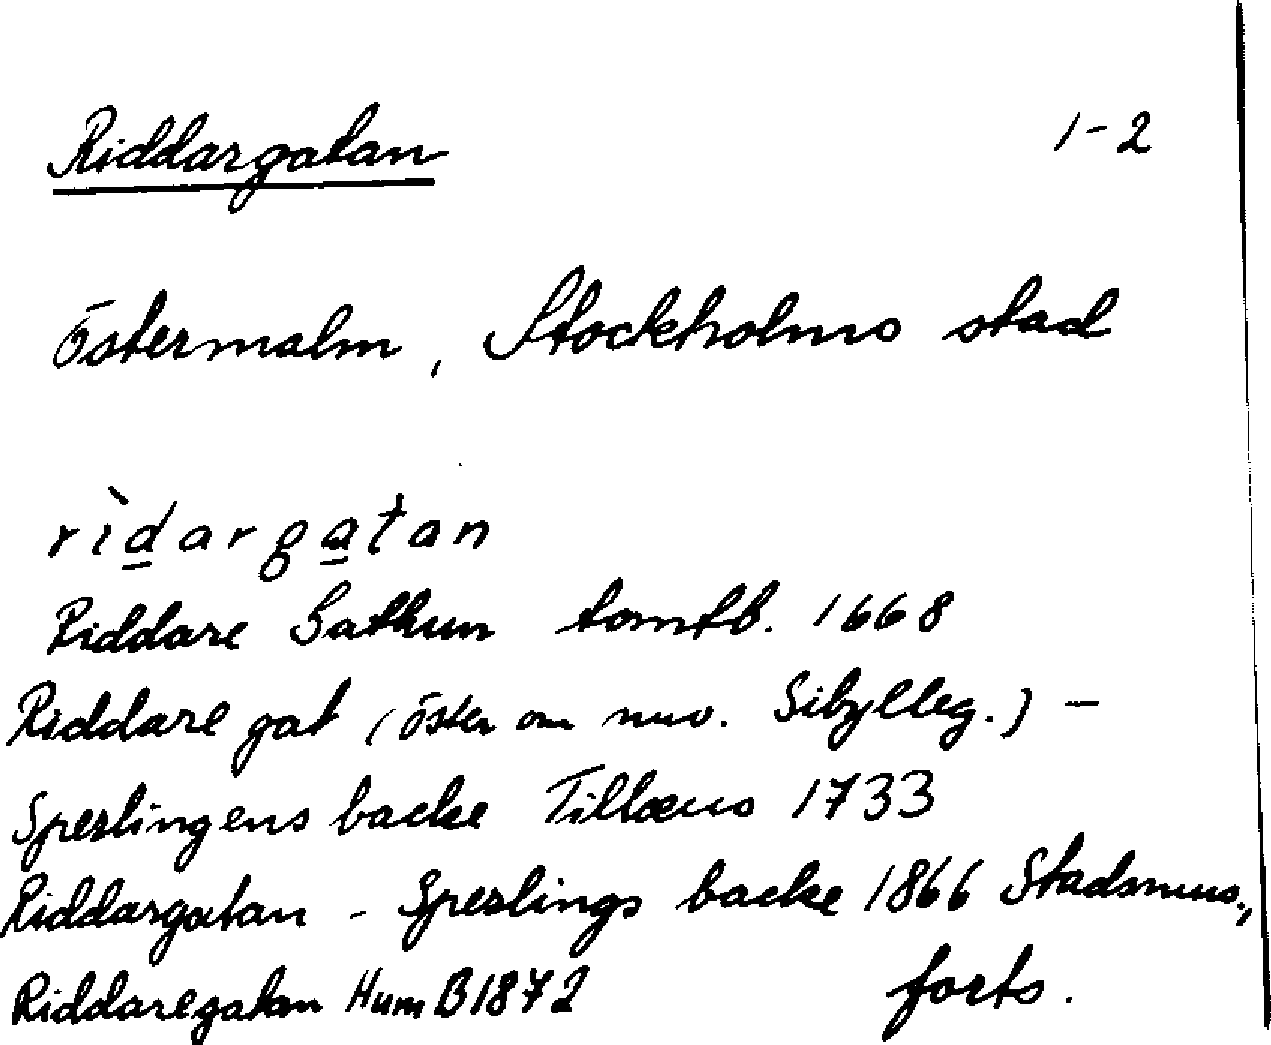 Riddargatan 1-2
Östermalm, Stockholms stad
rìdargatan
Riddare Gathun tomtb. 1668
Riddare gat (öster om nuv. Sibylleg.) -
Sperlingens backe Tillæus 1733
Riddargatan - Sperlings backe 1866 Stadsmus.,
Riddaregatan Hum B 1872 forts.